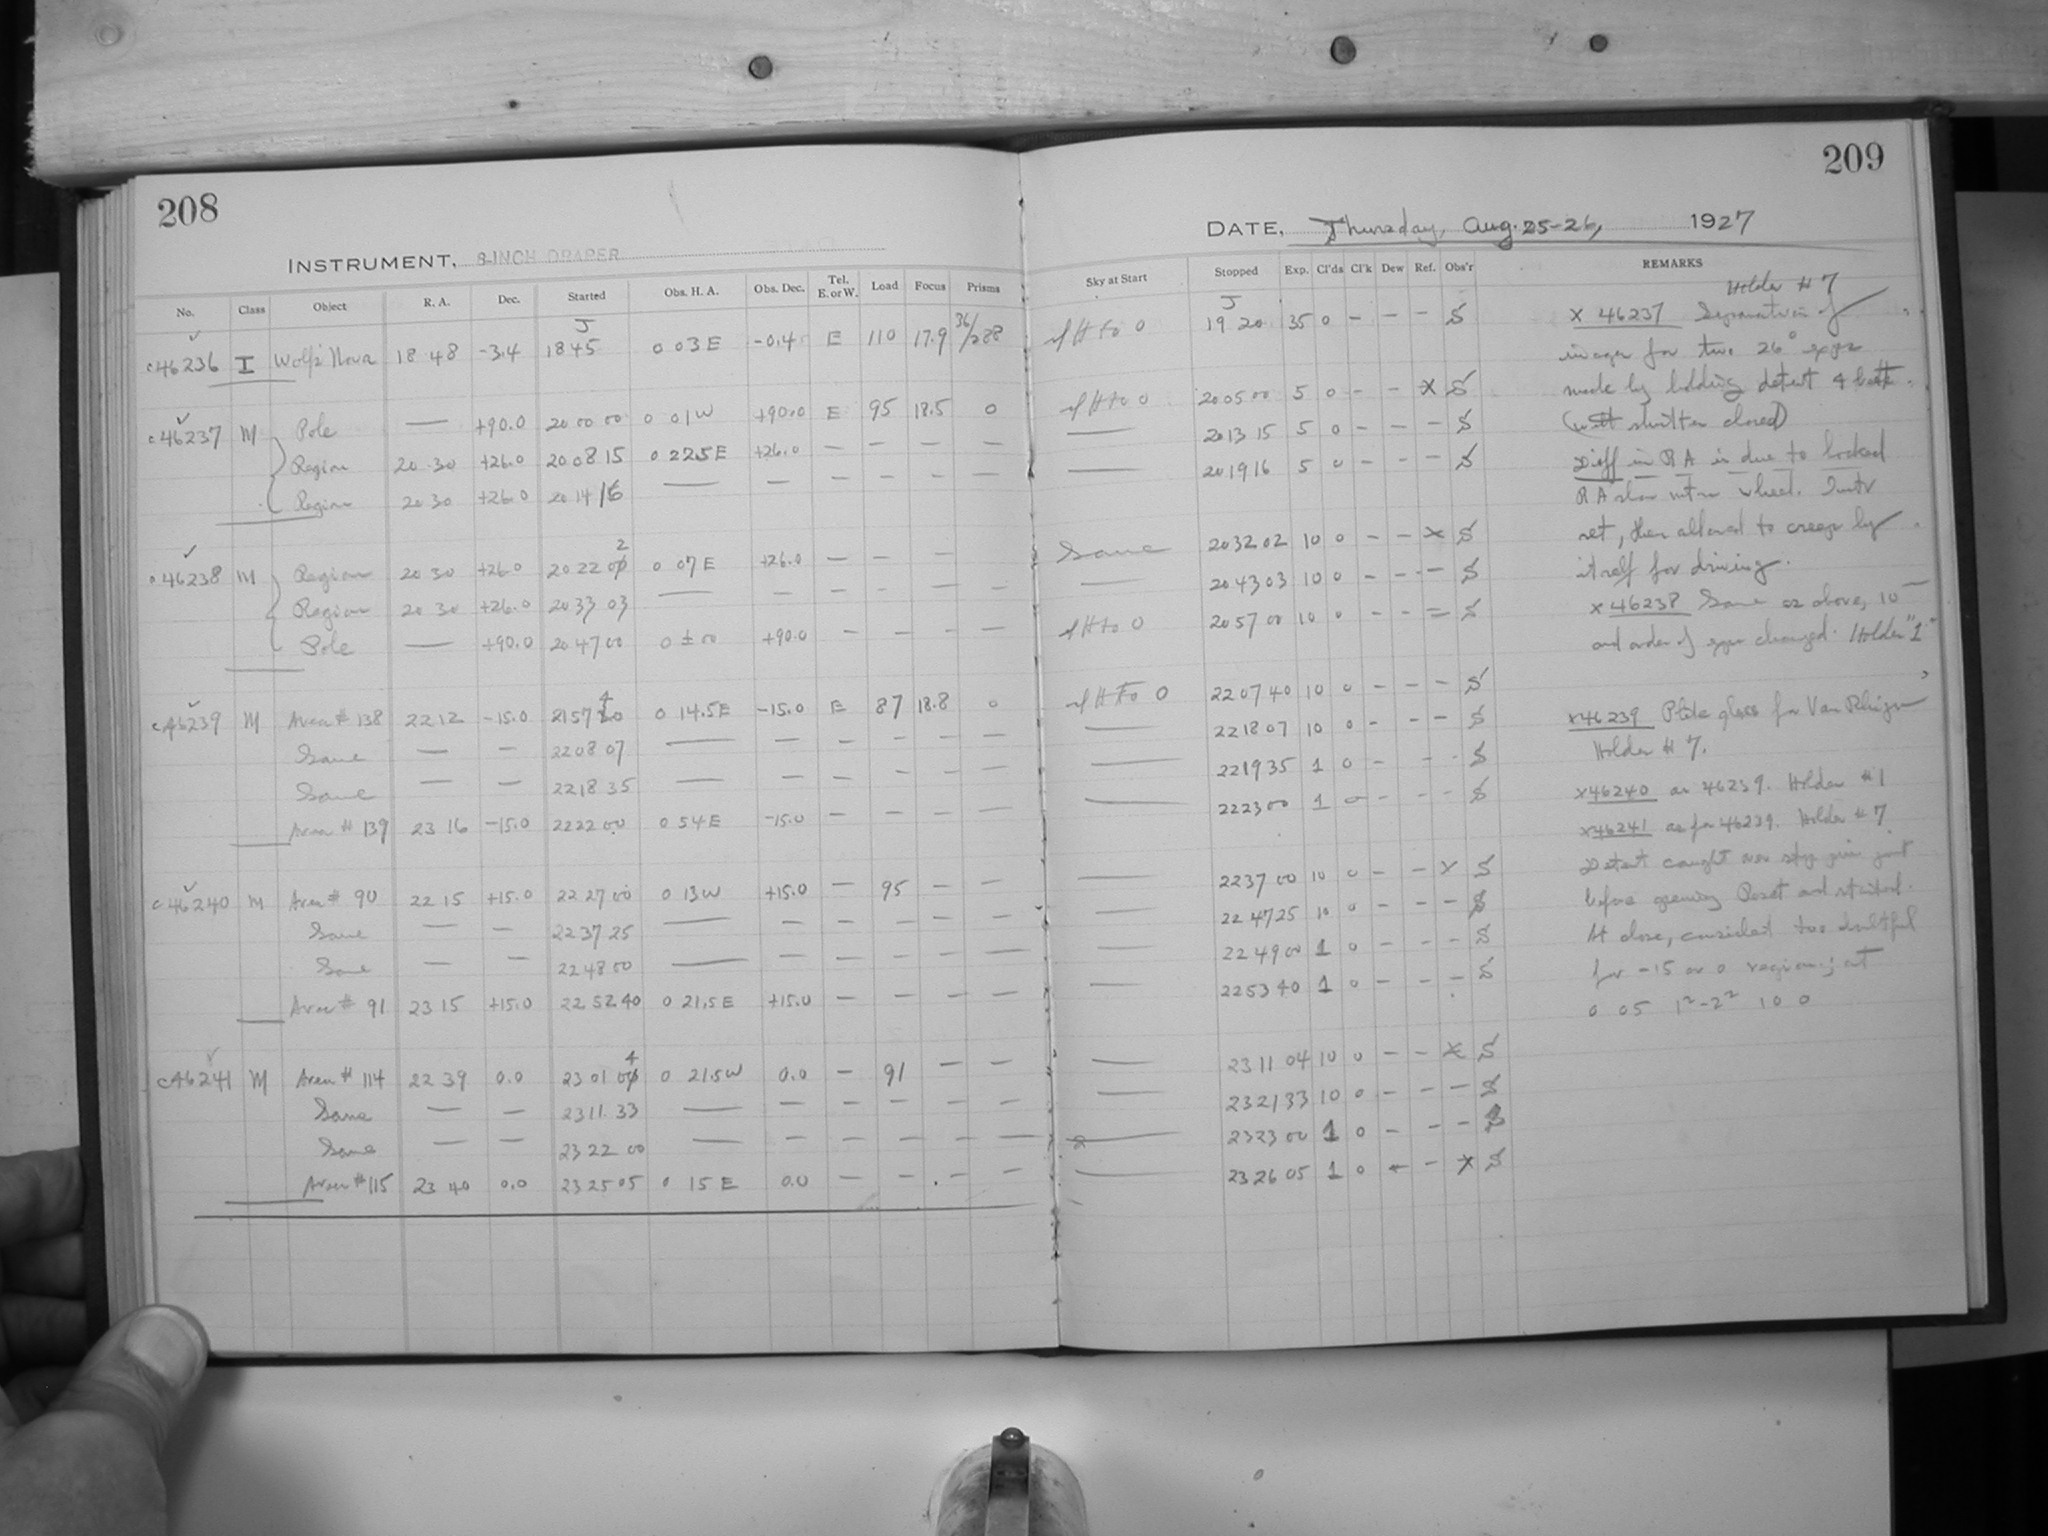 208
INSTRUMENT, 8-INCH DRAPER
No. Class Object R. A. Dec. Started Obs. H. A. Obs. Dec. Tel. E. or W. Load Focus Prisms
c46236 I Wolf's Nova 18 48 -3.4 J 1845 0 03 E -0.4 E 110 17.9 36/288
c46237 M Pole — +90.0 20 00 00 0 01 W +90.0 E 95 18.5 0
Region 20 30 +26.0 20 08 15 0 22.5 E +26.0 — — — —
Region 20 30 +26.0 20 14 16 — — — — — —
c46238 M Region 20 30 +26.0 20 22 02 0 07 E +26.0 — — —
Region 20 30 +26.0 20 33 03 — — — — — —
Pole — +90.0 20 47 00 0 ± 00 +90.0 — — — —
c46239 M Area # 138 22 12 -15.0 21 57 40 0 14.5 E -15.0 E 87 18.8 0
Same — — 22 08 07 — — — — — —
Same — — 22 18 35 — — — — — —
Area # 139 23 16 -15.0 22 22 00 0 54 E -15.0 — — — —
c46240 M Area # 90 22 15 +15.0 22 27 00 0 13 W +15.0 — 95 — —
Same — — 22 37 25 — — — — — —
Same — — 22 48 00 — — — — — —
Area # 91 23 15 +15.0 22 52 40 0 21.5 E +15.0 — — — —
c46241 M Area # 114 22 39 0.0 23 01 04 0 21.5 W 0.0 — 91 — —
Same — — 23 11 33 — — — — — —
Same — — 23 22 00 — — — — — —
Area # 115 23 40 0.0 23 25 05 0 15 E 0.0 — — — —
209
DATE, Thursday, Aug. 25-26, 1927
Sky at Start Stopped Exp. Cl'ds Cl'k Dew Ref. Obs'r REMARKS
J 19 20 35 0 - - - S
20 05 00 5 0 - - X S
— 20 13 15 5 0 - - - S
— 20 19 16 5 0 - - - S
Same 20 32 02 10 0 - - X S
— 20 43 03 10 0 - - - S
20 57 00 10 0 - - = S
22 07 40 10 0 - - - S
— 22 18 07 10 0 - - - S
— 22 19 35 1 0 - - - S
— 22 23 00 1 0 - - - S
— 22 37 00 10 0 - - X S
— 22 47 25 10 0 - - - S
— 22 49 00 1 0 - - - S
— 22 53 40 1 0 - - - S
— 23 11 04 10 0 - - X S
— 23 21 33 10 0 - - - S
— 23 23 00 1 0 - - - S
— 23 26 05 1 0 - - X S
Holder # 7
X 46237 Separation of
images for two 26° expos
made by holding detent 4 beats
(with shutter closed)
Diff in R A is due to locked
R A slow motion wheel.
set, then allowed to creep by
itself for driving.
X 46238 Same as above, 10
and order of expos changed. Holder "1"
X 46239 Plate glass for Van Rhijn
Holder # 7.
X 46240 as 46239. Holder #1
X 46241 as for 46239. Holder # 7
Detent caught over stop pin just
before opening Reset and started.
At close, considered too doubtful
for -15 or 0 region; at
0 05